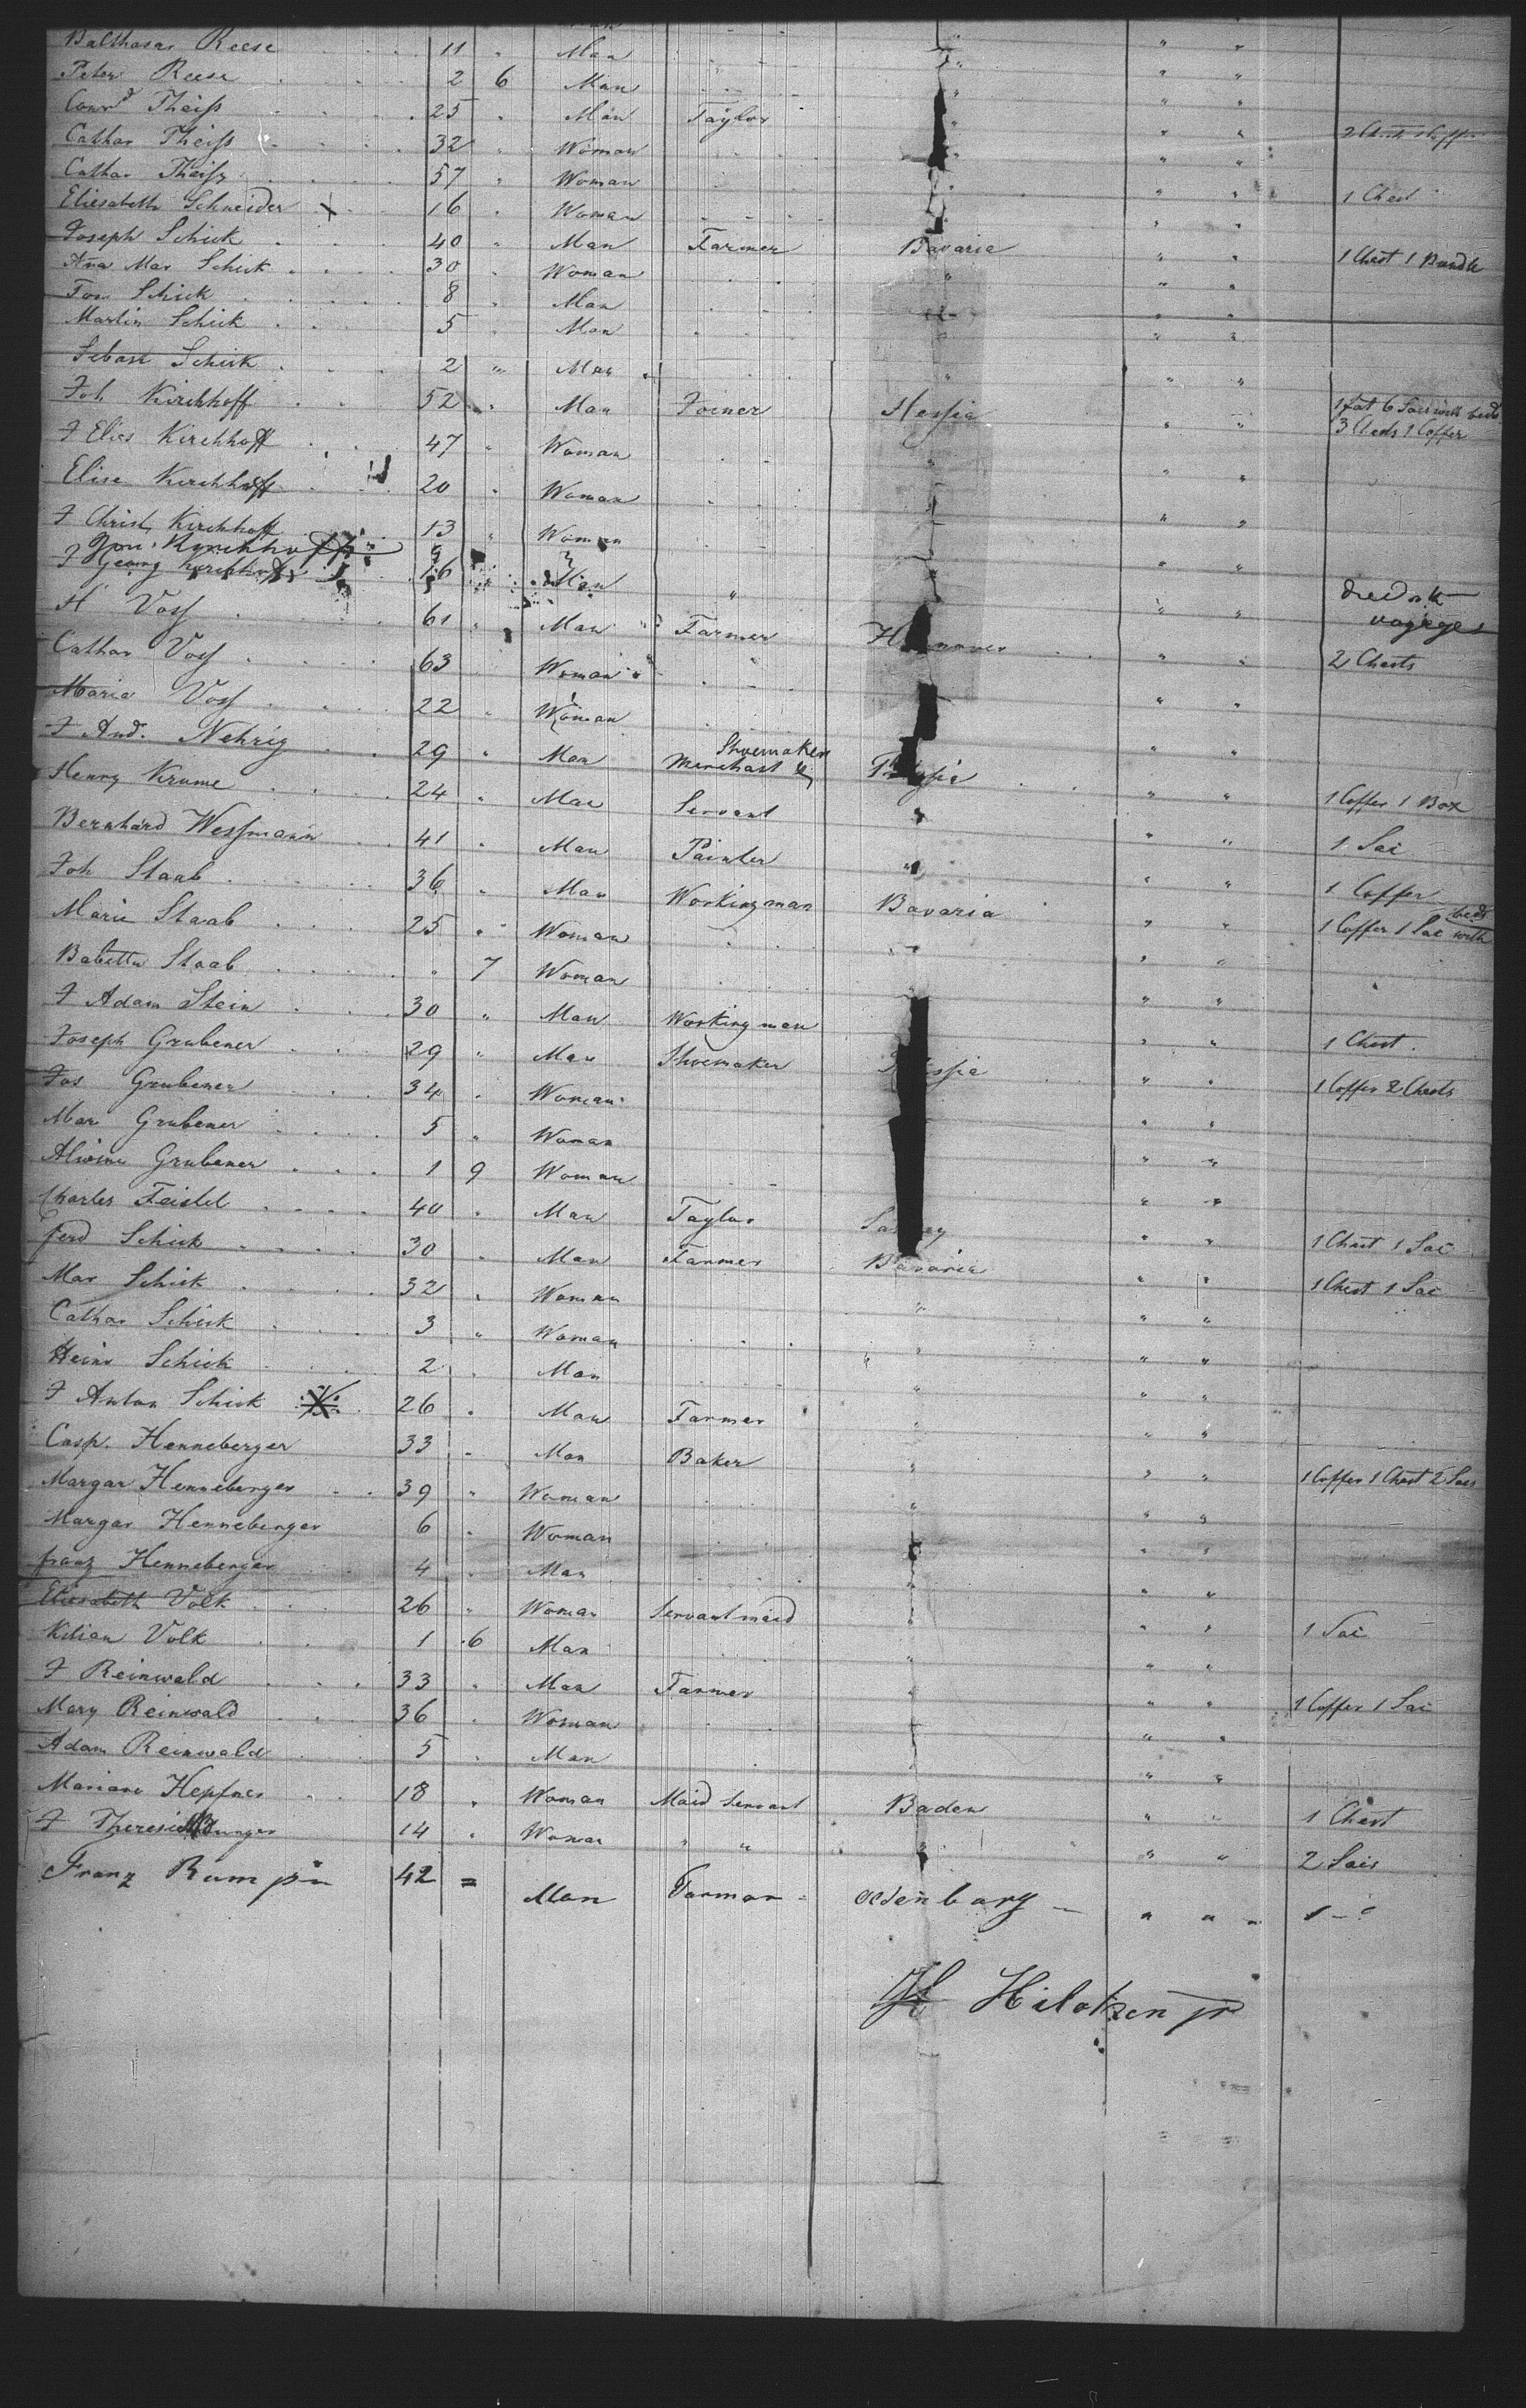 Balthasar Reese 11 " Man " "
Peter Reese 2 6 Man " "
Conrd Theiss 25 " Man Taylor " "
Cathar Theiss 32 " Woman " "
Cathar Theiss 57 " Woman " "
Eliesabeth Schneider 16 " Woman " " 1 Chest
Joseph Schick 40 " Man Farmer Bavaria " " 1 Chest 1 Bundle
Ana Mar Schick 30 " Woman " " "
Schick 8 " Man " "
Martin Schick 5 " Man " "
Sebast Schick 2 " Man " " "
Joh Kirchhoff 52 " Man Joiner Hessia " " 1 fat 6 Sacs with beds
3 Chests 1 Coffer
J Elies Kirchhoff 47 " Woman " " "
Elise Kirchhoff 20 " Woman " "
J Christ Kirchhoff 13 " Woman " "
J Georg Kirchhoff Man " died on the voyage
H Voss 61 " Man Farmer Hannover " " 2 Chests
Cathar Voss 63 Woman " "
Maria Voss 22 " Woman " "
J And. Nehrig 29 " Man Shoemaker
Merchant " " 1 Coffer 1 Box
Henry Krume 24 " Man Servant " " " 1 Sac
Bernhard Wessmann 41 " Man Painter " " " 1 Coffer
Joh Staab 36 " Man Workingman Bavaria " " 1 Coffer 1 Sac with beds
Marie Staab 25 " Woman " " "
Babetta Staab " 7 Woman " " "
J Adam Stein 30 " Man Workingman " " 1 Chest
Joseph Grubener 29 " Man Shoemaker " " 1 Coffer 2 Chests
Jos Grubener 34 " Woman " "
Mar Grubener 5 " Woman " "
Alwine Grubener 1 9 Woman " "
Charles Feistel 40 " Man Taylor " " 1 Chest 1 Sac
ferd Schick 30 " Man Farmer Bavaria " " 1 Chest 1 Sac
Mar Schick 32 " Woman " " "
Cathar Schick 3 " Woman " " "
Heinr Schick 2 " Man " " "
J Anton Schick 26 " Man Farmer " " "
Casp. Henneberger 33 " Man Baker " " " 1 Coffer 1 Chest 2 Sacs
Margar Henneberger 39 " Woman " " "
Margar Henneberger 6 " Woman " " "
franz Henneberger 4 " Man " " "
Eliesabeth Volk 26 " Woman Servantmaid " " " 1 Sac
Kilian Volk 1 6 Man " " "
J Reinwald 33 " Man Farmer " " " 1 Coffer 1 Sac
Mary Reinwald 36 " Woman " "
Adam Reinwald 5 " Man " "
Mariane Hepfner 18 " Woman Maid Servant Baden " " 1 Chest
J Theresie 14 " Woman " " " " " 2 Sacs
Franz Rump 42 = Man Farmer Oldenburg " " " 1
H Hilcken jr